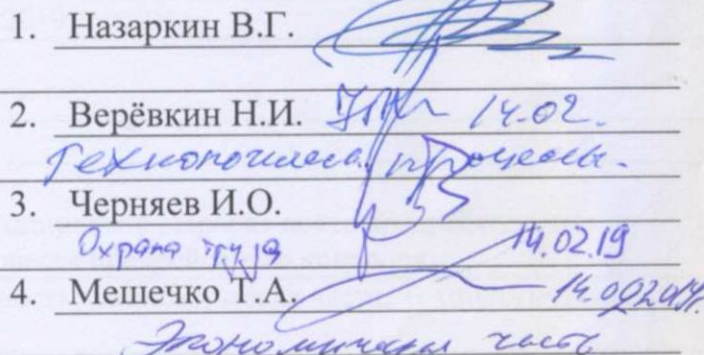 1. Назаркин В.Г.
2. Верёвкин Н.И. 14.02.
Технологическ. процессы.
3. Черняев И.О.
Охрана труда 14.02.19
4. Мешечко Т.А. 14.02.2019г.
Экономическая часть